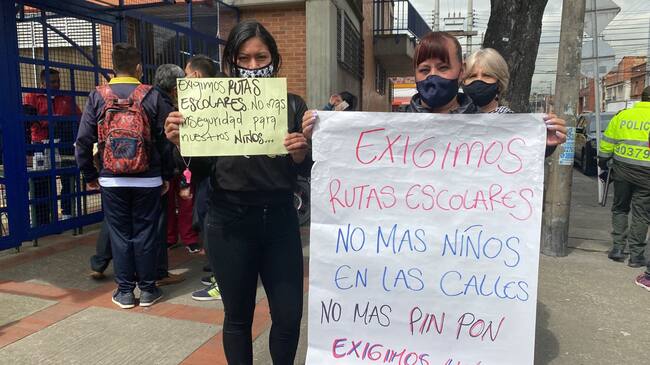 Exigimos RUTAS
ESCOLARES NO mas
inseguridad para
nuestros NIÑOS...
EXIGIMOS
RUTAS ESCOLARES
NO MAS NIÑOS
EN LAS CALLES
NO MAS PIN PON
EXIGIMOS
POLIC
90339